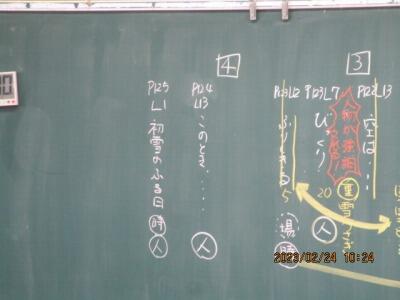 3
P122 L13
空は…
P123 L7
びっくり
20
人
重
雪うさぎ
P123 L12
ふりきる
5
場
時
4
P124
L13
このとき、……
人
P125
L1
初雪のふる日
時
人
2023/02/24 10:24